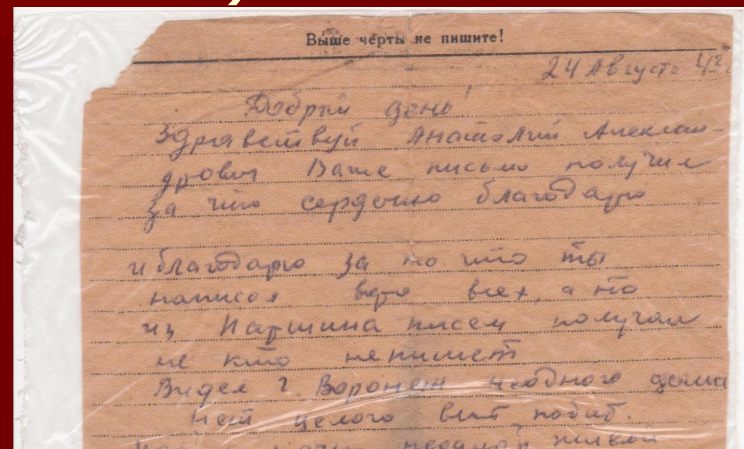 Выше черты не пишите!
24 Августа 43 г
Добрый день!
Здравствуй Анатолий Алексан-
дрович Ваше письмо получил
за что сердечно благодарю
и благодарю за то что ты
написал всех, а то
из Паршина писем получал
не кто непишет
Видел г. Воронеж неодного дома
нет целого